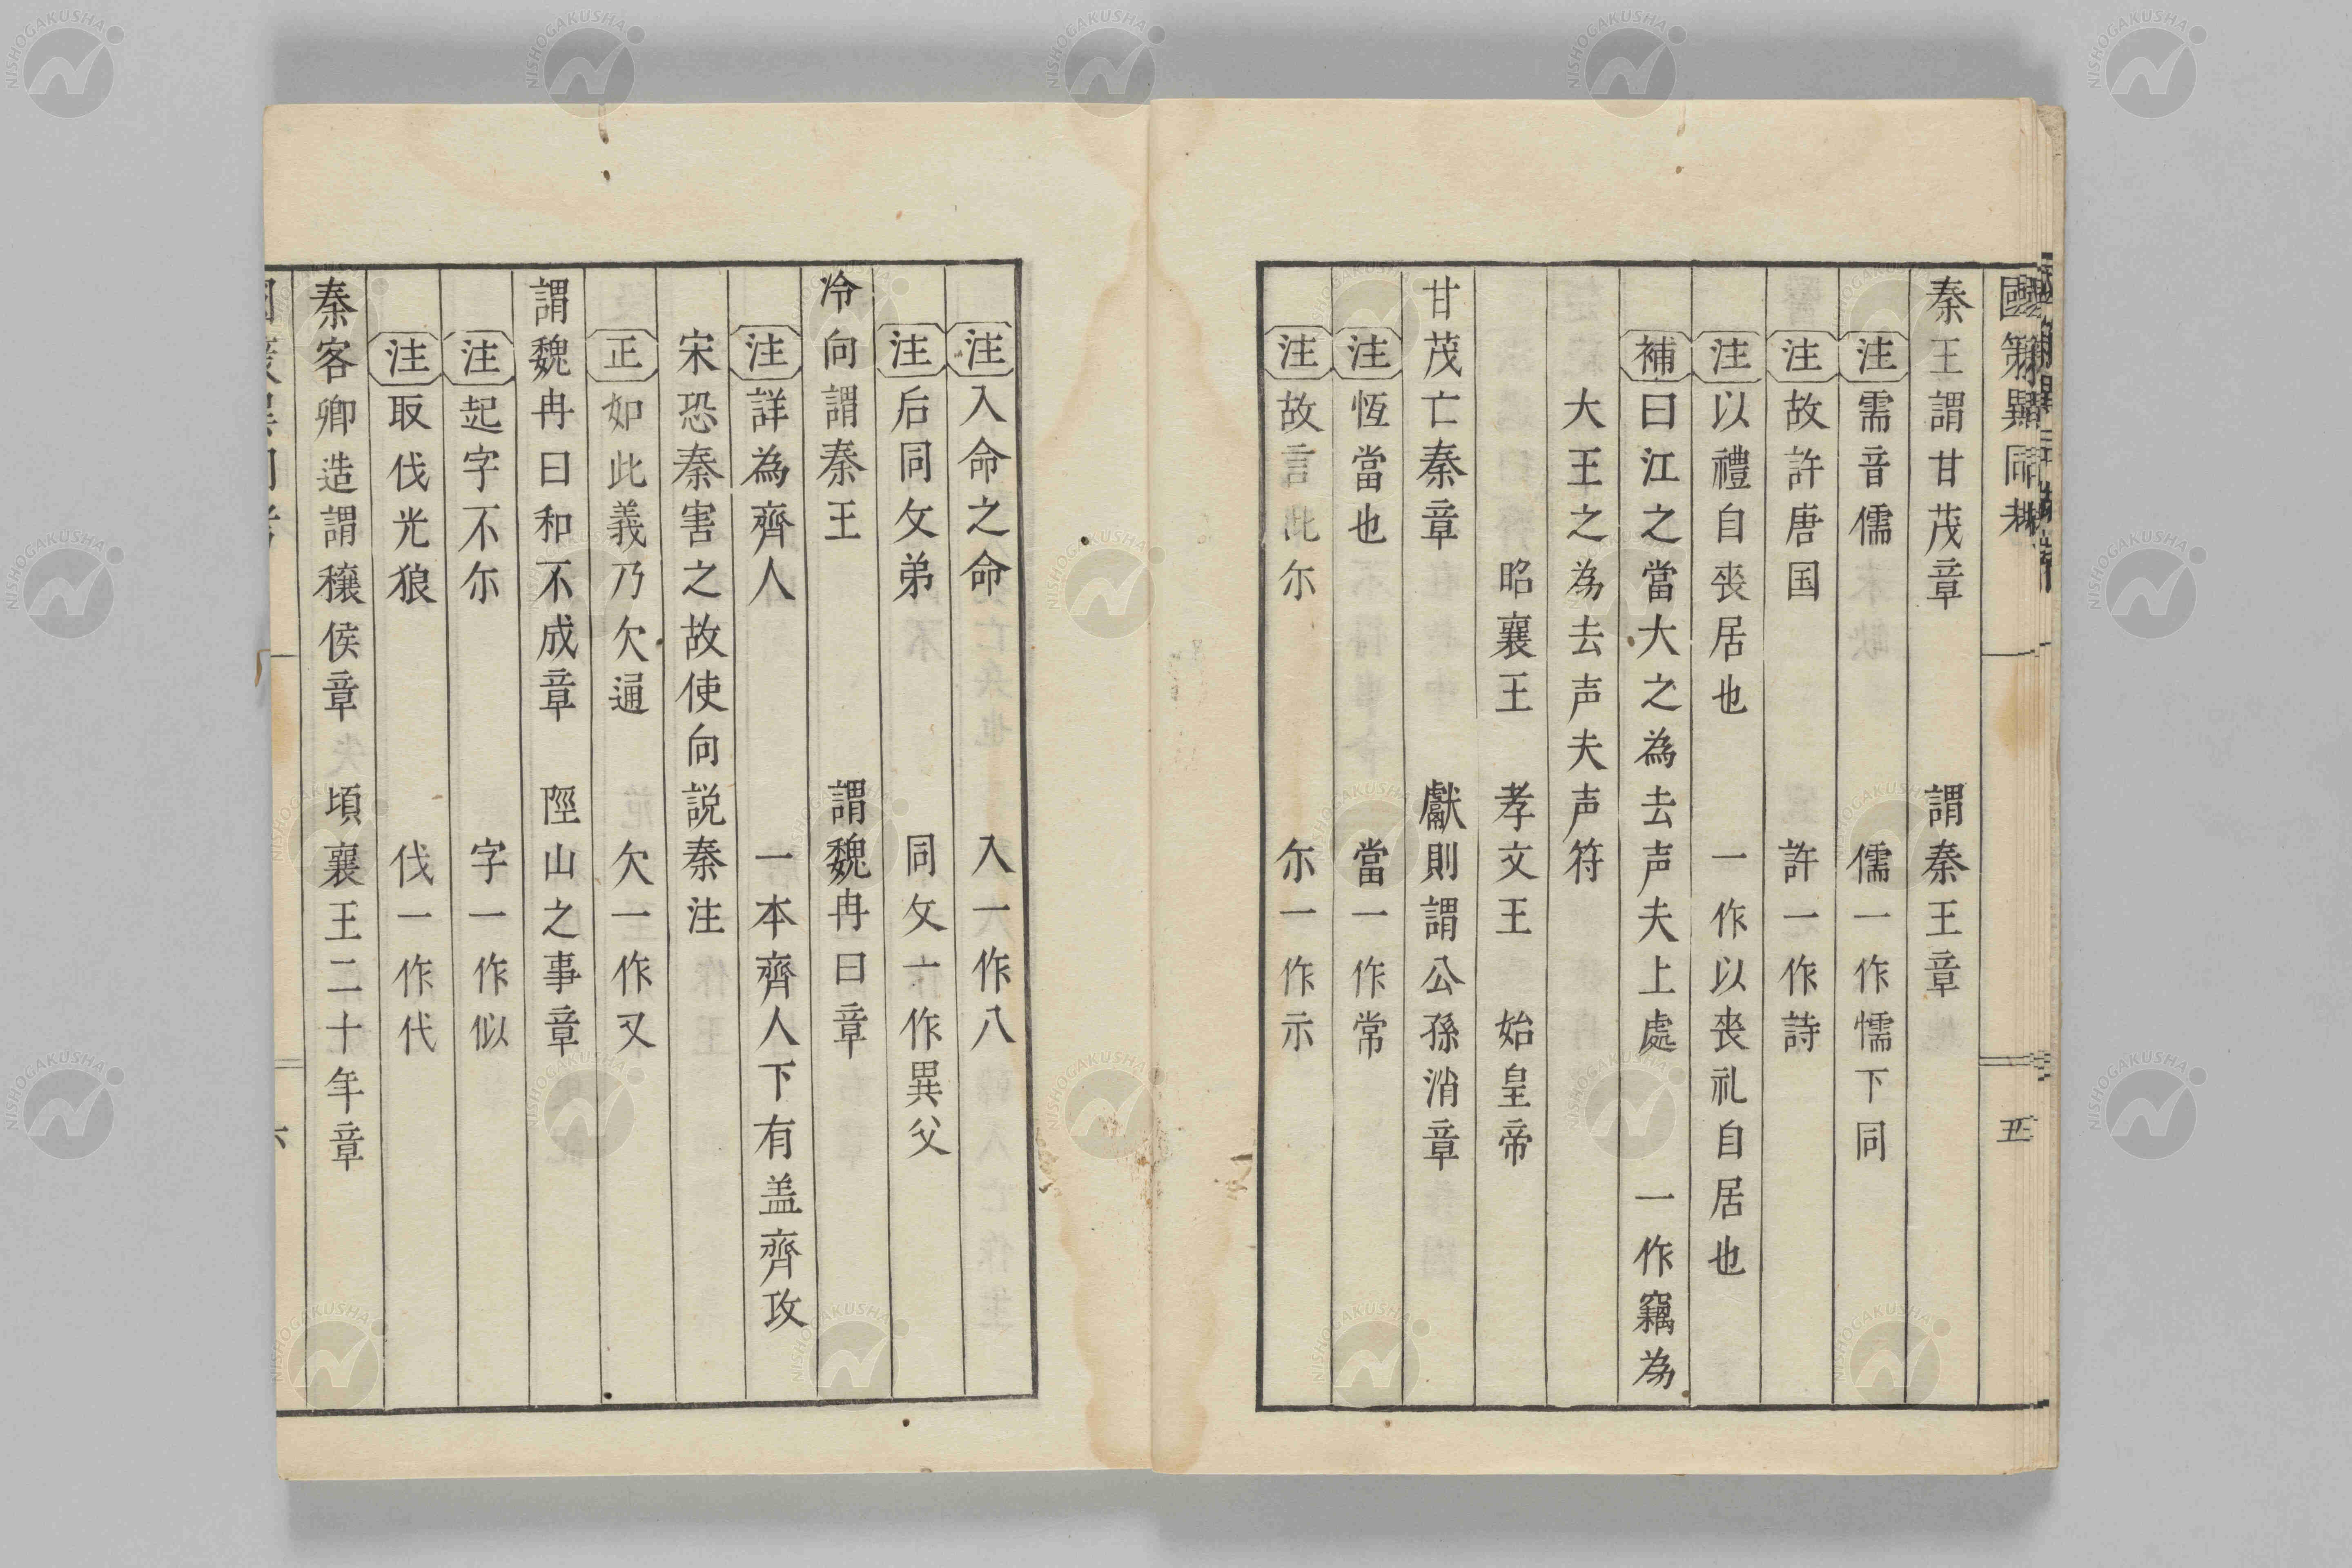 國策異同考
五
秦王謂甘茂章　謂秦王章
注 需音儒　儒一作懦下同
注 故許唐国　許一作詩
注 以禮自喪居也　一作以丧礼自居也
補 曰江之當大之為去声夫上處　一作竊為
大王之為去声夫声符
昭襄王　孝文王　始皇帝
甘茂亡秦章　獻則謂公孫消章
注 恆當也　當一作常
注 故言此尓　尓一作示
注 入命之命　入一作八
注 后同攵弟　同攵一作異父
冷向謂秦王　謂魏冉曰章
注 詳為齊人　一本齊人下有盖齊攻
宋恐秦害之故使向説秦注
正 如此義乃欠通　欠一作又
謂魏冉曰和不成章　陘山之事章
注 起字不尓　字一作似
注 取伐光狼　伐一作代
秦客卿造謂穰侯章　頃襄王二十年章
NISHOGAKUSHA